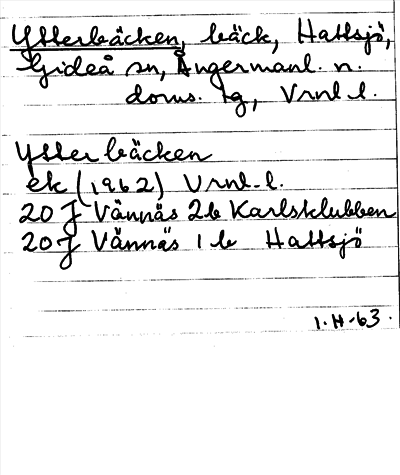 Ytterbäcken, bäck, Hattsjö,
Gideå sn, Ångermanl. n.
doms. tg, Vrnl. l.
Ytterbäcken
ek (1962) Vrnl. l.
20 J Vännäs 2b Karlsklubben
20 J Vännäs 1b Hattsjö
1.H-63.